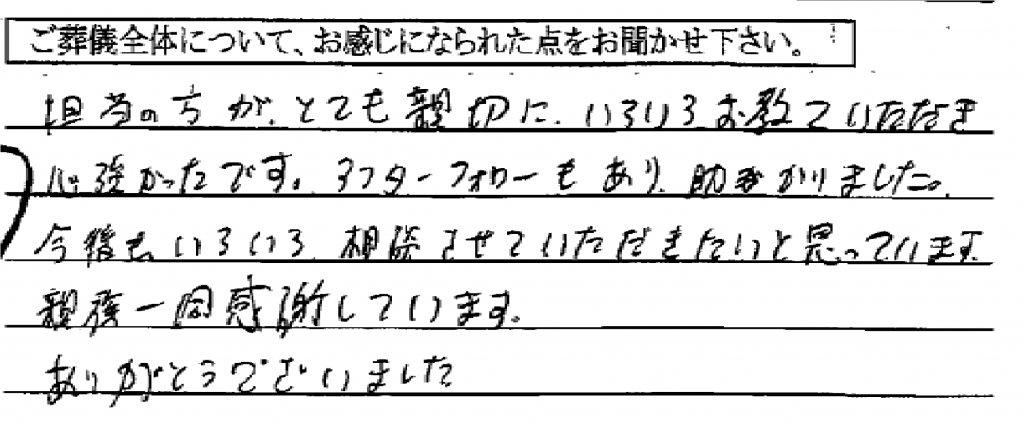 ご葬儀全体について、お感じになられた点をお聞かせ下さい。
担当の方が、とても親切に、いろいろお教ていただき
心強かったです。アフターフォローもあり、助かりました。
今後もいろいろ相談させていただきたいと思っています。
親族一同感謝しています。
ありがとうございました